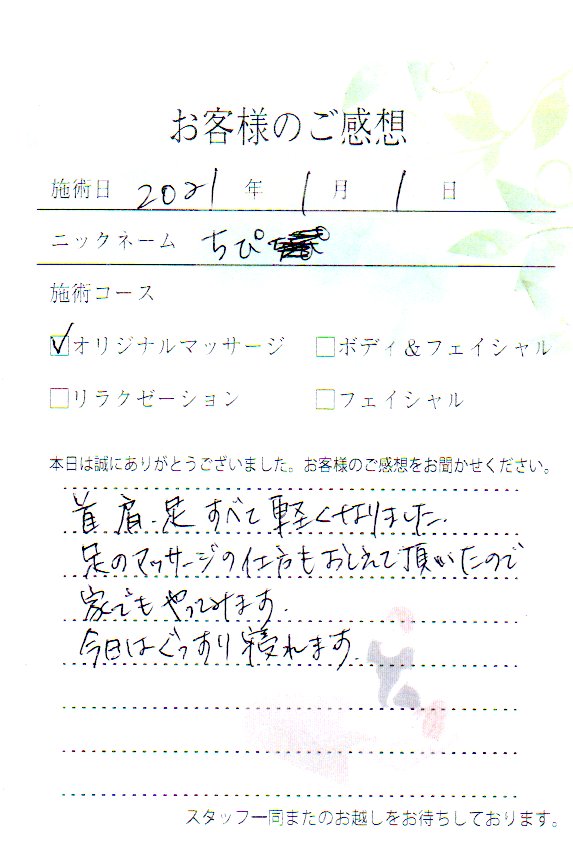 お客様のご感想
施術日 2021 年 1 月 1 日
ニックネーム ちぴ
施術コース
オリジナルマッサージ ボディ&フェイシャル
リラクゼーション フェイシャル
本日は誠にありがとうございました。お客様のご感想をお聞かせください。
首 肩、足 すべて 軽くなりました.
足のマッサージの仕方もおしえて頂いたので
家でもやってみます.
今日はぐっすり寝れます.
スタッフ一同またのお越しをお待ちしております。